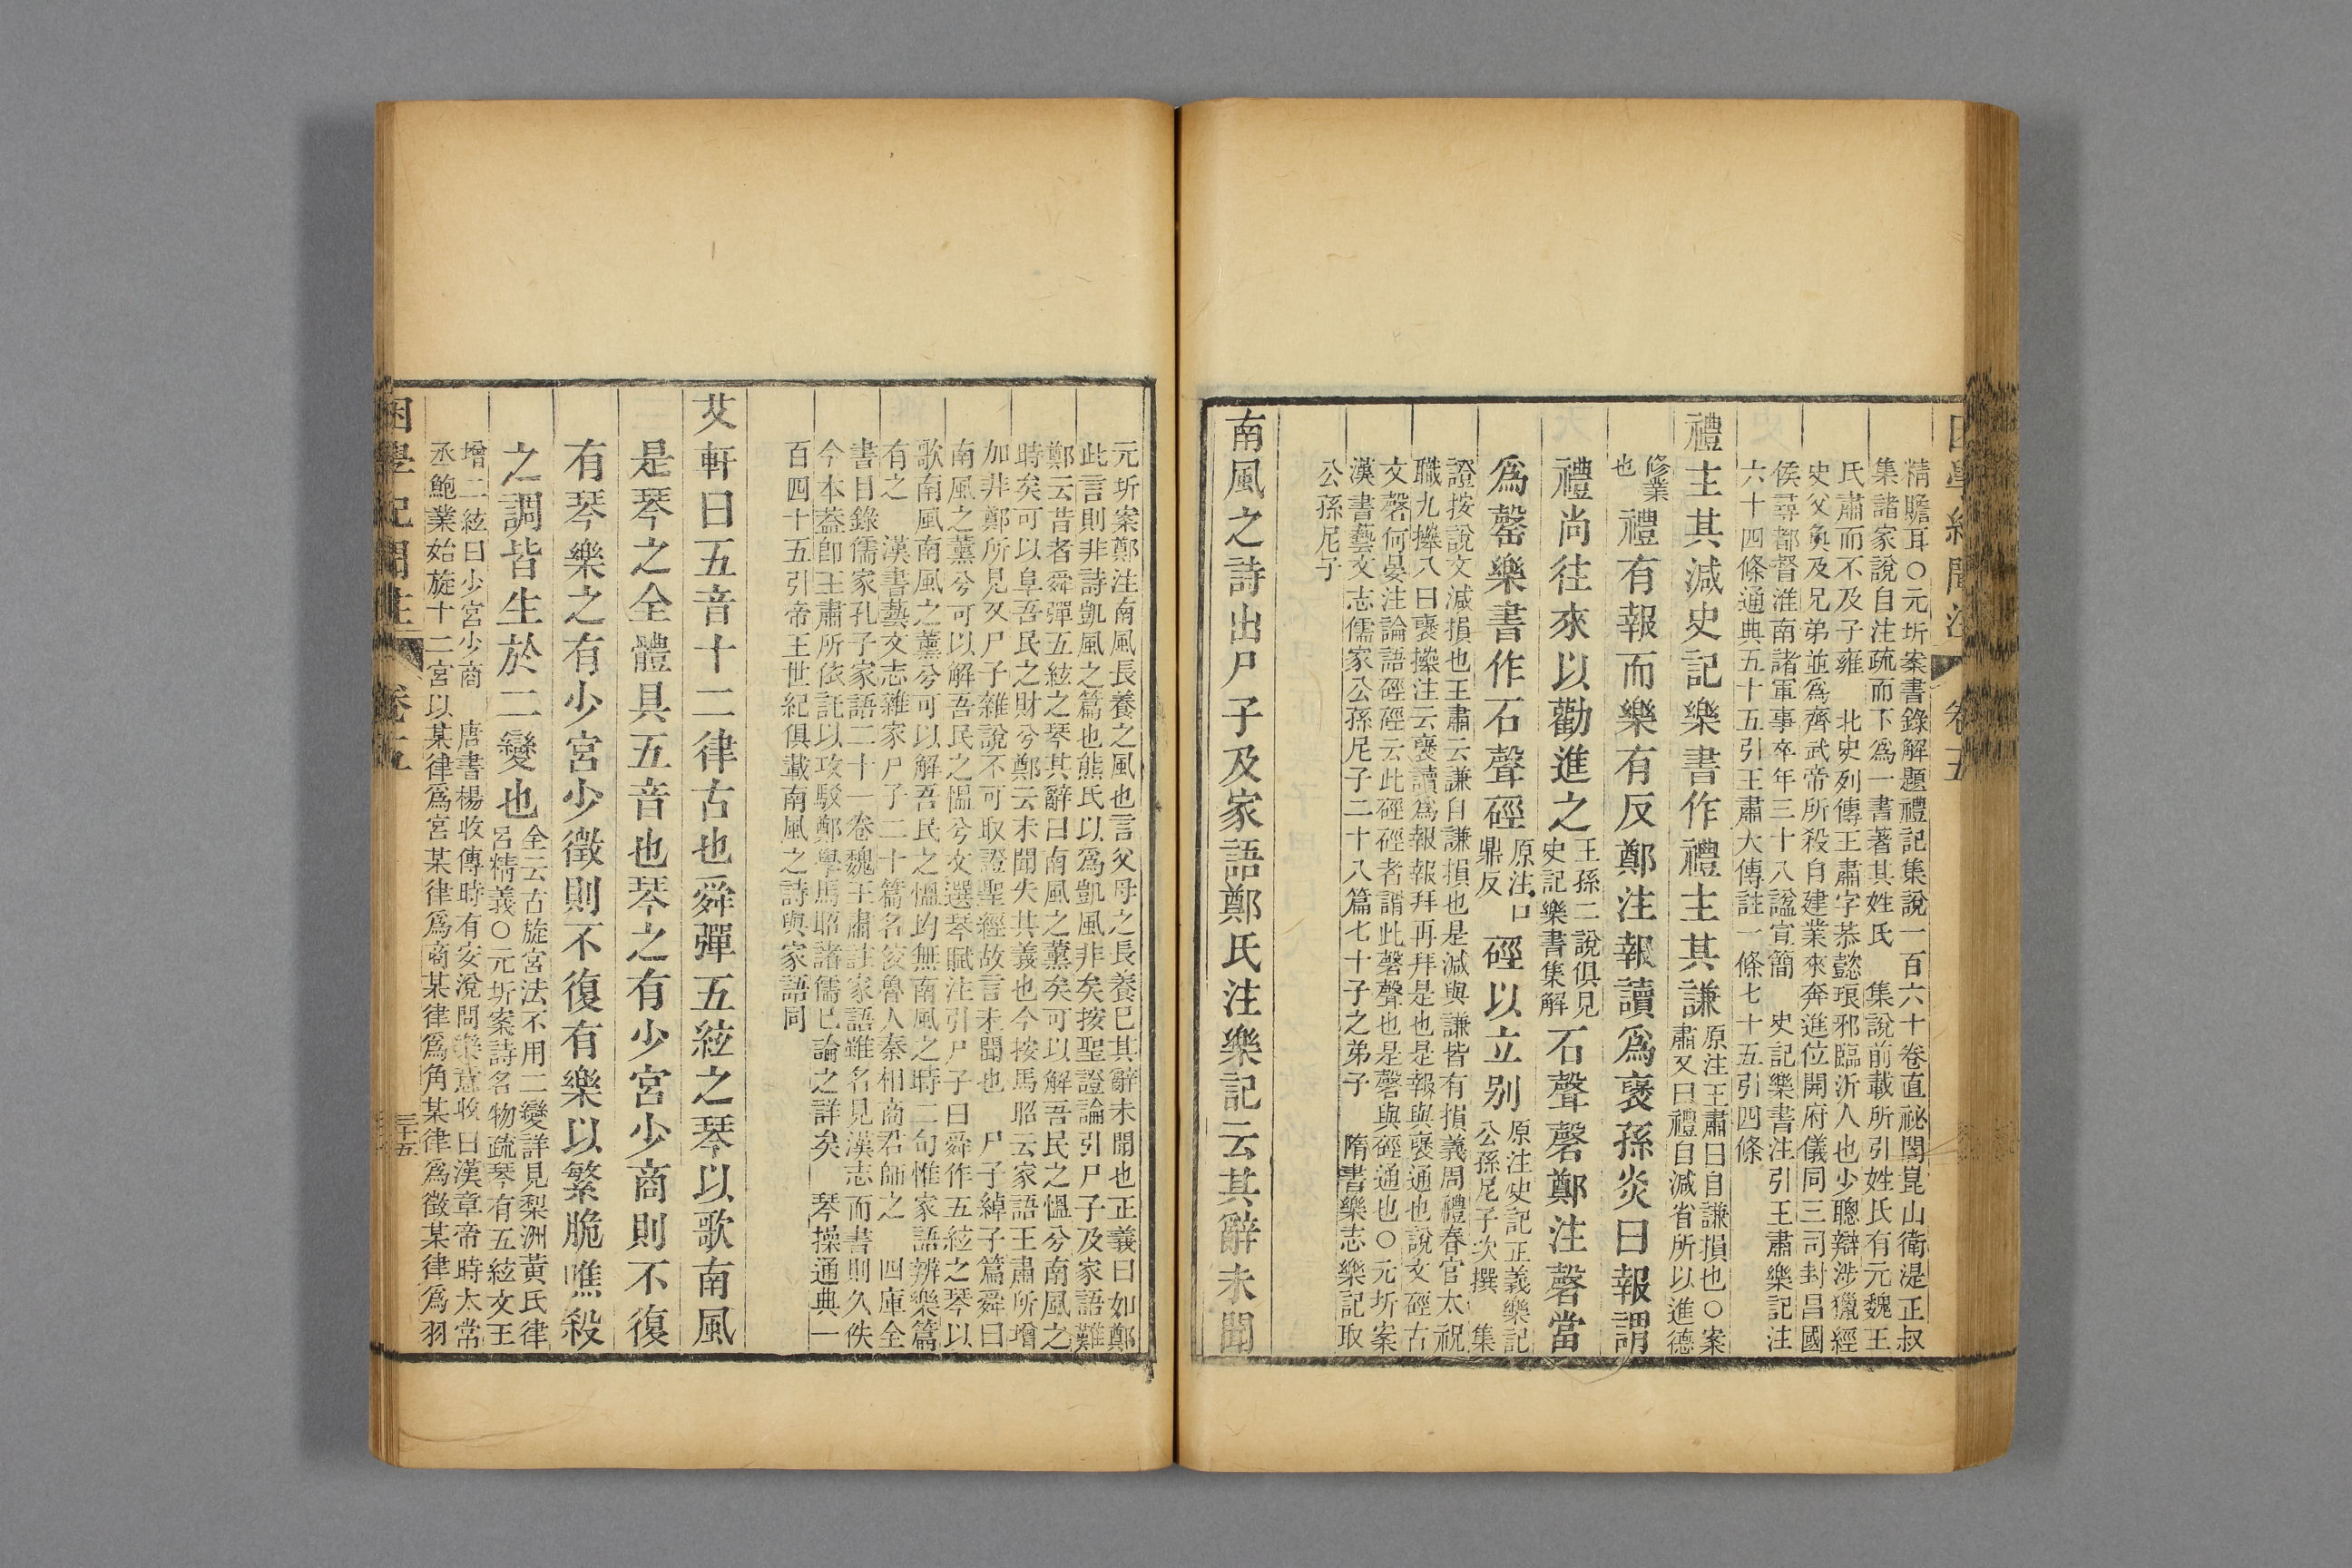 精贍耳○元圻案書錄解題禮記集說一百六十卷直祕閣崑山衛湜正叔
集諸家說自注疏而下爲一書著其姓氏 集說前載所引姓氏有元魏王
氏肅而不及子雍 北史列傳王肅字恭懿琅邪臨沂人也少聰辯涉獵經
史父奐及兄弟並爲齊武帝所殺自建業來奔進位開府儀同三司封昌國
侯尋都督淮南諸軍事卒年三十八諡宣簡 史記樂書注引王肅樂記注
六十四條通典五十五引王肅大傳註一條七十五引四條
禮主其減史記樂書作禮主其謙原注王肅曰自謙損也○案
肅又曰禮自減省所以進德
修業
也禮有報而樂有反鄭注報讀爲褒孫炎曰報謂
禮尚往來以勸進之王孫二說俱見
史記樂書集解石聲磬鄭注磬當
爲罄樂書作石聲硜原注口
鼎反硜以立別原注史記正義樂記
公孫尼子次撰 集
證按說文減損也王肅云謙自謙損也是減與謙皆有損義周禮春官太祝
職九𢷎八曰褒𢷎注云褒讀爲報報拜再拜是也是報與褒通也說文硜古
文磬何晏注論語硜硜云此硜硜者謂此磬聲也是磬與硜通也○元圻案
漢書藝文志儒家公孫尼子二十八篇七十子之弟子 隋書樂志樂記取
公孫尼子
南風之詩出尸子及家語鄭氏注樂記云其辭未聞
元圻案鄭注南風長養之風也言父母之長養已其辭未聞也正義曰如鄭
此言則非詩凱風之篇也熊氏以爲凱風非矣按聖證論引尸子及家語難
鄭云昔者舜彈五絃之琴其辭曰南風之薰矣可以解吾民之慍兮南風之
時矣可以阜吾民之財兮鄭云未聞失其義也今按馬昭云家語王肅所增
加非鄭所見又尸子雜說不可取證聖經故言未聞也 尸子綽子篇舜曰
南風之薰兮可以解吾民之慍兮文選琴賦注引尸子曰舜作五絃之琴以
歌南風南風之薰兮可以解吾民之慍均無南風之時二句惟家語辨樂篇
有之 漢書藝文志雜家尸子二十篇名佼魯人秦相商君師之 四庫全
書目錄儒家孔子家語二十一卷魏王肅註家語雖名見漢志而書則久佚
今本葢卽王肅所依託以攻駁鄭學馬昭諸儒已論之詳矣 琴操通典一
百四十五引帝王世紀俱載南風之詩與家語同
艾軒曰五音十二律古也舜彈五絃之琴以歌南風
是琴之全體具五音也琴之有少宮少商則不復
有琴樂之有少宮少徵則不復有樂以繁脆噍殺
之調皆生於二變也全云古旋宮法不用二變詳見梨洲黃氏律
呂精義○元圻案詩名物疏琴有五絃文王
增二絃曰少宮少商 唐書楊收傳時有安涗問樂意收曰漢章帝時太常
丞鮑業始旋十二宮以某律爲宮某律爲商某律爲角某律爲徵某律爲羽
困學紀聞注 卷五 三十五